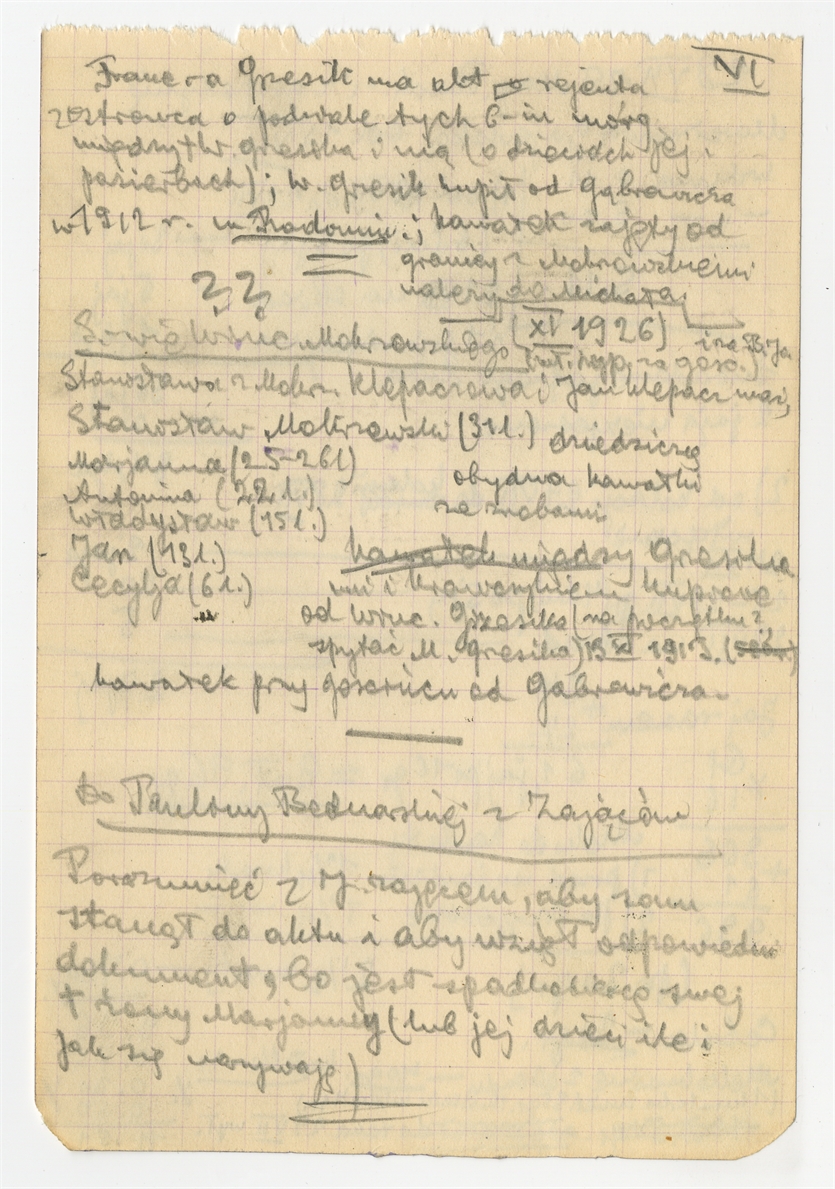 VI
Franc-a Grzesik ma akt rejenta
z Ostrowca o podziale tych 6-iu mórg
między W. Grzesika i nią (o dzieciach jej i
pasierbach); W. Grzesik kupił od Gąbrowicza
w 1912 r. w Radomiu.; kawałek zajęty od
granicy z Mokrzowskiemi
należy do Michała
??
S-wie Winc. Mokrzowskiego (XI 1926)
Stanisława z Mokrz. Klepaczowa i Jan Klepacz mąż,
Stanisław Mokrzowski (31 l.) dziedziczą
Marjanna (25-26 l) obydwa kawałki
Antonina (22 l.) ze zrobami
Władysław (15 l.)
Jan (13 l.) kawałek między Grzesika
Cecylja (6 l.) mi i Krawczykiem kupiony
od Winc. Grzesika (na początku?
spytać M. Grzesika) 15 XI 1913.
kawałek przy gościńcu od Gąbrowicza.
Do Pauliny Bednarskiej z Zająców
Porozumieć z J. Zającem, aby sam
stanął do aktu i aby wziął odpowiedni
dokument, bo jest spadkobiercą swej
† żony Marjanny (lub jej dzieci ile i
jak się nazywają)